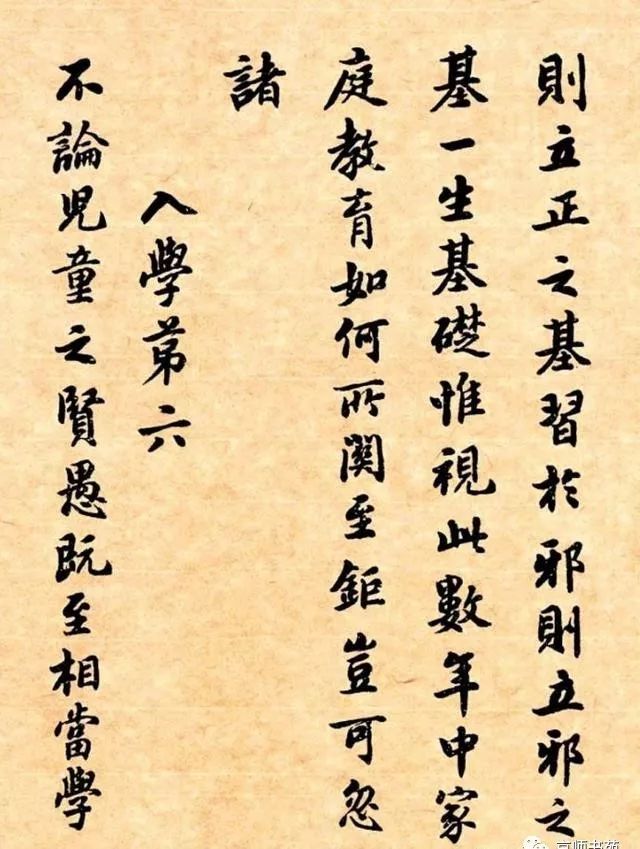 則立正之基習於邪則立邪之
基一生基礎惟視此數年中家
庭教育如何所關至鉅豈可忽
諸
入學第六
不論兒童之賢愚既至相當學